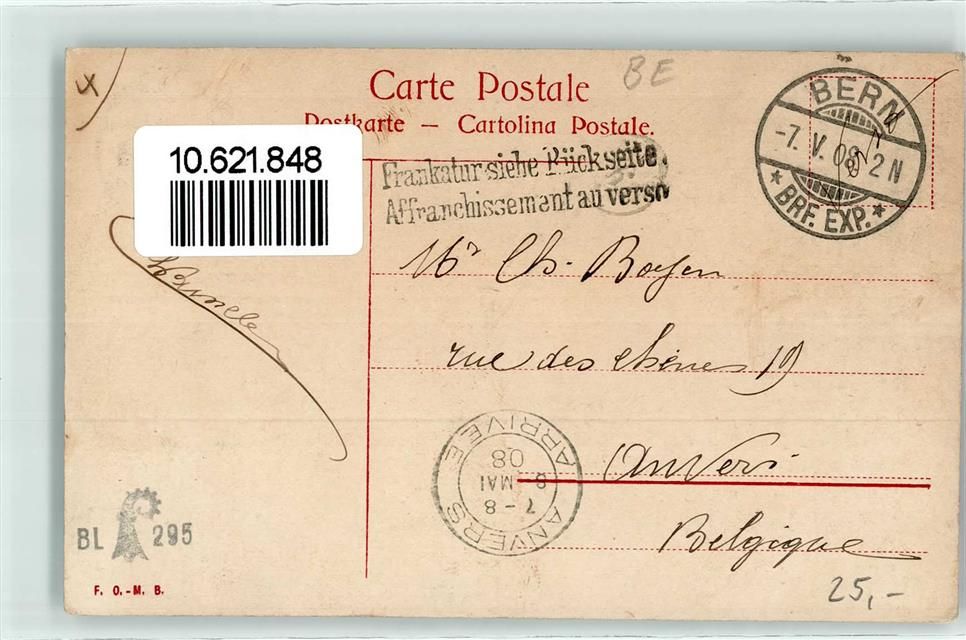 Carte Postale
BE
Postkarte — Cartolina Postale.
10.621.848
Frankatur siehe Rückseite.
Affranchissement au verso
BERN
-7. V. 08 2 N
* BRF. EXP. *
Mr Ch. Boeyen
rue des chênes 19
Anvers
Belgique
ANVERS
7-8
8 MAI
08
ARRIVEE
BL 295
F. O.-M. B.
25,-